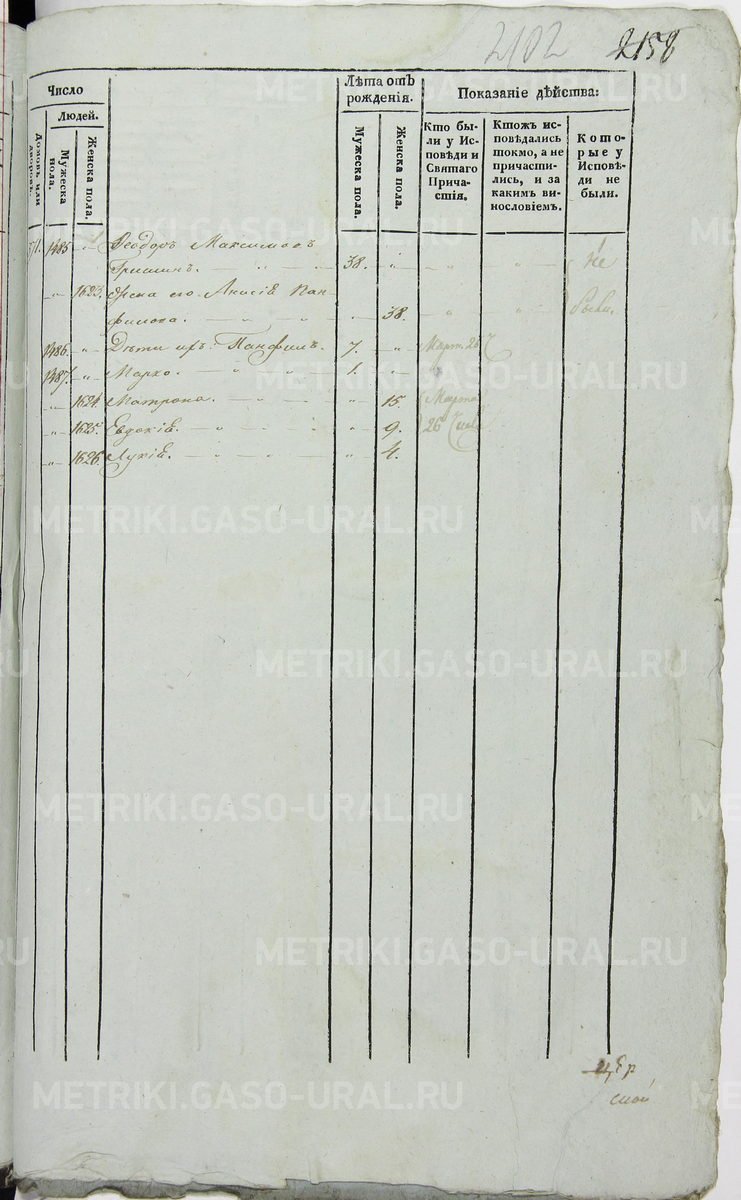 2102 2158
Число
Лѣта отъ рожденія.
Показаніе дѣйства:
Людей.
Домовъ или дворовъ.
Мужеска пола.
Женска пола.
Мужеска пола.
Женска пола.
Кто были у Исповѣди и Святаго Причастія.
Ктожъ исповѣдались токмо, а не причастились, и за какимъ винословіемъ.
Которые у Исповѣди не были.
1485 „ Ѳеодоръ Максимовъ
Гришинъ. 38. „ „ „ Не
„ 1623. Жена его Анисія Пан-
филова. „ 38. „ „ были.
1486. „ Дѣти ихъ: Панфилъ. 7. „ Март. 26
1487. „ Марко. 1. „
„ 1624. Матрона. „ 15. Марта
„ 1625. Евдокія. „ 9. 26
„ 1626. Лукія. „ 4.
METRIKI.GASO-URAL.RU